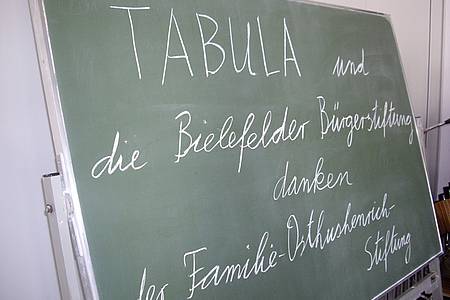 TABULA und
die Bielefelder Bürgerstiftung
danken
der Familie-Osthushenrich-
Stiftung